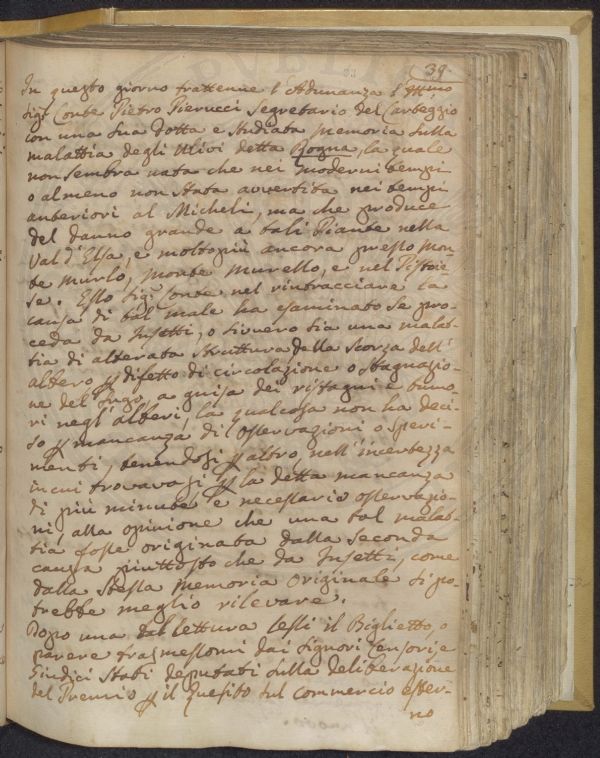 39.
In questo giorno trattenne l'Adunanza l'Ill.mo
Sig.r Conte Pietro Pierucci Segretario del Carteggio
con una sua dotta e studiata Memoria sulla
malattia degli Ulivi detta Rogna, la quale
non sembra nata che nei moderni tempi
o almeno non stata avvertita nei tempi
anteriori al Micheli, ma che produce
del danno grande a tali Piante nella
Val d'Elsa, e molto più ancora presso Mon-
te murlo, Monte Murello, e nel Pistoie
se. Esso Sig.r Conte nel rintracciare la
causa di tal male ha esaminato se pro-
ceda da Insetti, o sivvero sia una malat-
tia di alterata struttura della scorza dell'
albero p difetto di circolazione o stagnazio-
ne del sugo, a guisa dei ristagni e tumo-
ri negl'alberi, la qualcosa non ha deci-
so p mancanza di osservazioni o speri-
menti, tenendosi p altro, nell'incertezza
in cui trovavasi p la detta mancanza
di più minute e necessarie osservazio-
ni, alla opinione che una tal malat-
tia fosse originata dalla seconda
causa piuttosto che da Insetti, come
dalla stessa Memoria originale si po-
trebbe meglio rilevare.
Dopo una tal lettura lessi il Biglietto, o
parere trasmessomi dai Signori Censori, e
Giudici stati deputati sulla deliberazione
del Premio p il Quesito sul commercio ester-
no